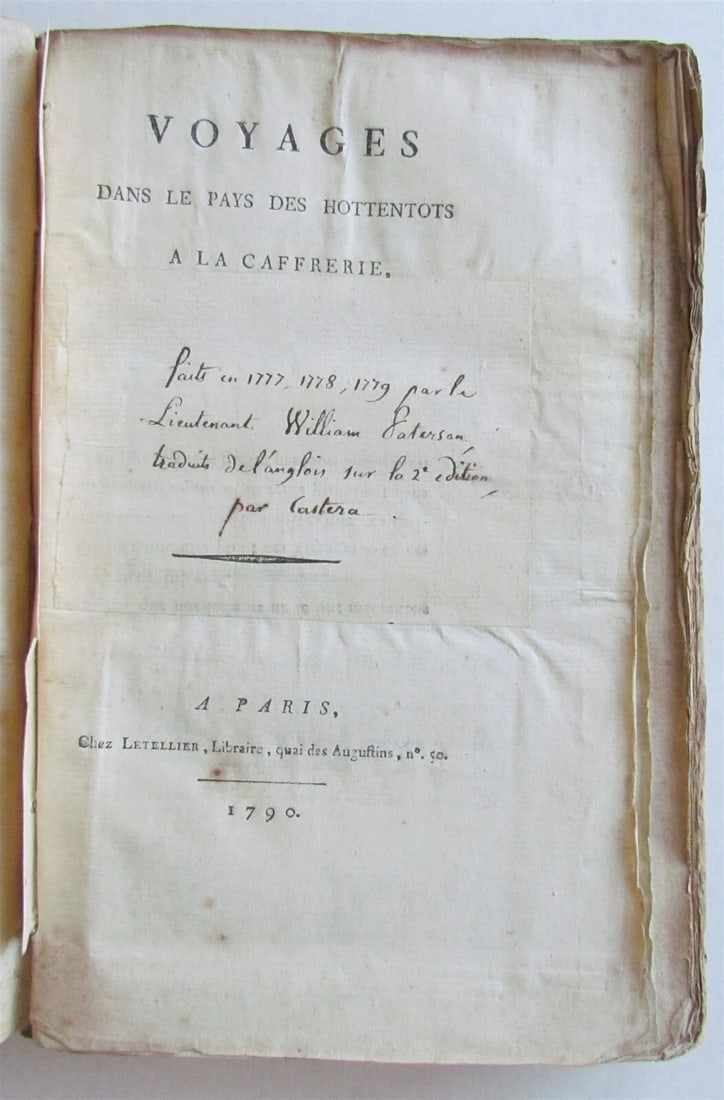 VOYAGES
DANS LE PAYS DES HOTTENTOTS
A LA CAFFRERIE,
faits en 1777, 1778, 1779 par le
Lieutenant William Paterson,
traduits de l'anglois sur la 2e edition,
par Castera.
A PARIS,
Chez LETELLIER, Libraire, quai des Auguſtins, nº. 50.
1790.